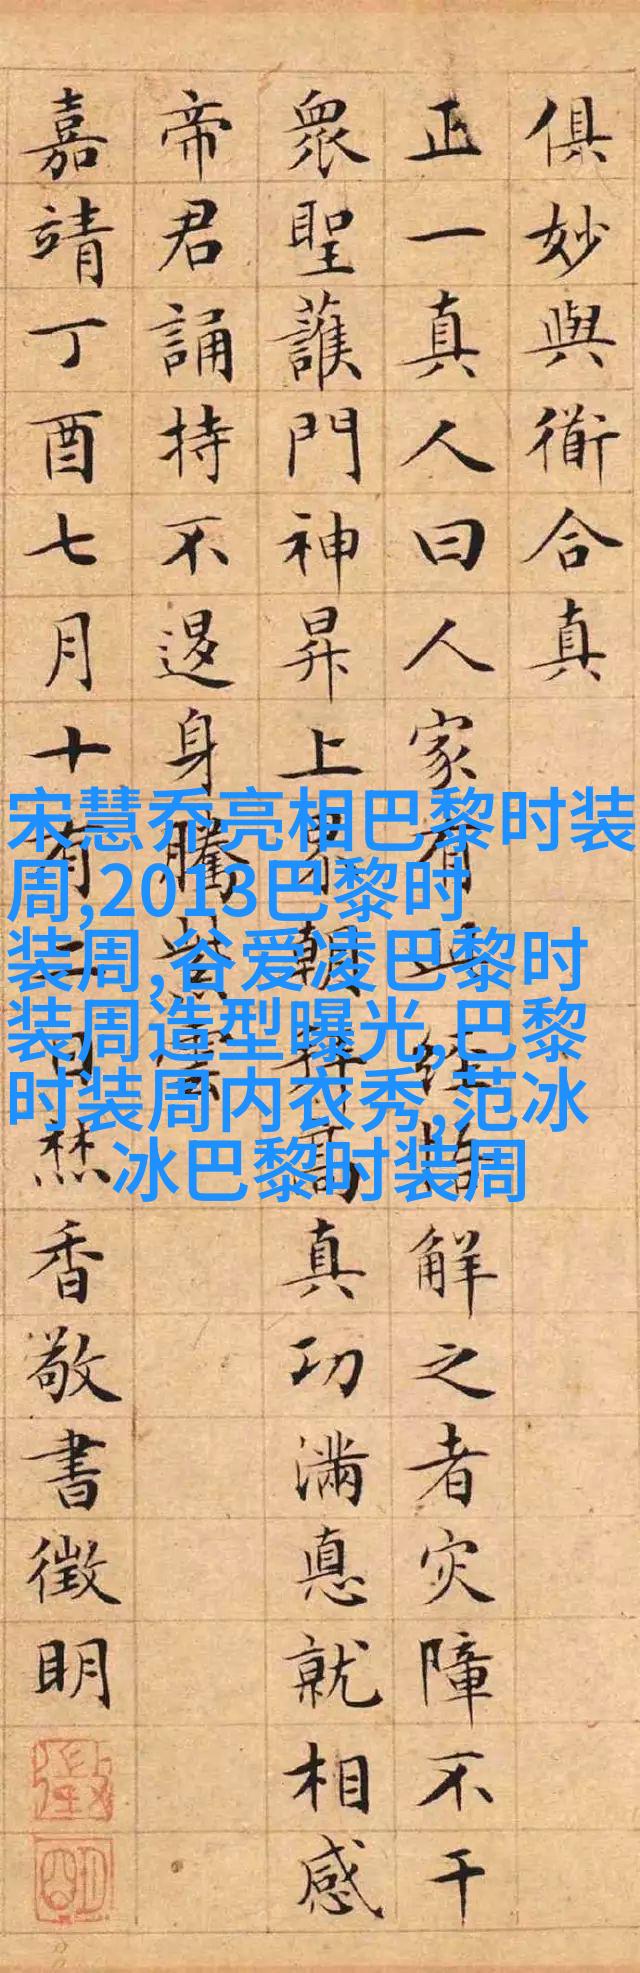 俱妙與衜合真
正一真人曰人家有此經悟解之者灾障不干
衆聖護門神昇上界朝拜高真功滿悳就相感
帝君誦持不退身騰紫雲
嘉靖丁酉七月十有二日焚香敬書徵明
徵
明
宋慧乔亮相巴黎时装
周,2013巴黎时
装周,谷爱凌巴黎时
装周造型曝光,巴黎
时装周内衣秀,范冰
冰巴黎时装周